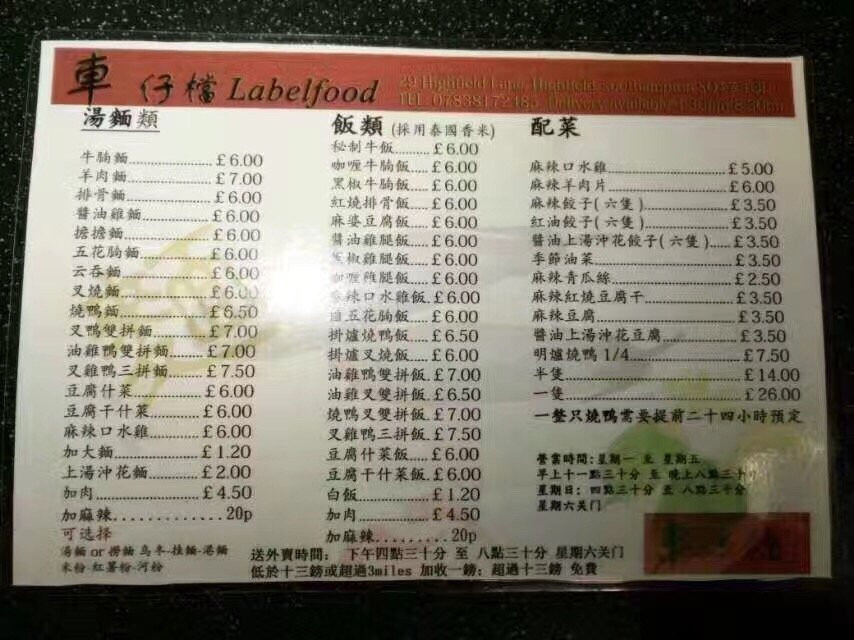 車仔檔 Labelfood
29 Highfield Lane, Highfield Southampton
TEL: 07838172485 Delivery available
湯麵類
牛腩麵 £6.00
羊肉麵 £7.00
排骨麵 £6.00
醬油雞麵 £6.00
擔擔麵 £6.00
五花腩麵 £6.00
云吞麵 £6.00
叉燒麵 £6.00
燒鴨麵 £6.50
叉鴨雙拼麵 £7.00
油雞鴨雙拼麵 £7.00
叉雞鴨三拼麵 £7.50
豆腐什菜 £6.00
豆腐干什菜 £6.00
麻辣口水雞 £6.00
加大麵 £1.20
上湯沖花麵 £2.00
加肉 £4.50
加麻辣 20p
可选择
湯麵 or 撈麵 烏冬-挂麵-港麵
米粉-紅薯粉-河粉
飯類 (採用泰國香米)
秘制牛飯 £6.00
咖喱牛腩飯 £6.00
黑椒牛腩飯 £6.00
紅燒排骨飯 £6.00
麻婆豆腐飯 £6.00
醬油雞腿飯 £6.00
椒雞腿飯 £6.00
咖喱雞腿飯 £6.00
麻辣口水雞飯 £6.00
五花腩飯 £6.00
掛爐燒鴨飯 £6.50
掛爐叉燒飯 £6.00
油雞鴨雙拼飯 £7.00
油雞叉雙拼飯 £6.50
燒鴨叉雙拼飯 £7.00
叉雞鴨三拼飯 £7.50
豆腐什菜飯 £6.00
豆腐干什菜飯 £6.00
白飯 £1.20
加肉 £4.50
加麻辣 20p
配菜
麻辣口水雞 £5.00
麻辣羊肉片 £6.00
麻辣餃子(六隻) £3.50
紅油餃子(六隻) £3.50
醬油上湯沖花餃子(六隻) £3.50
季節油菜 £3.50
麻辣青瓜絲 £2.50
麻辣紅燒豆腐干 £3.50
麻辣豆腐 £3.50
醬油上湯沖花豆腐 £3.50
明爐燒鴨 1/4 £7.50
半隻 £14.00
一隻 £26.00
一整只燒鴨需要提前二十四小時預定
營業時間: 星期一 至 星期五
早上十一點三十分 至 晚上八點三十分
星期日: 四點三十分 至 八點三十分
星期六关门
送外賣時間: 下午四點三十分 至 八點三十分 星期六关门
低於十三鎊或超過3miles 加收一鎊; 超過十三鎊 免費